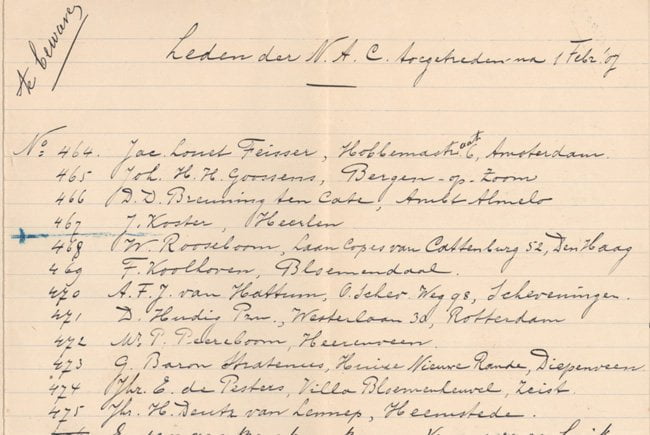 te bewaren
Leden der N. A. C. toegetreden na 1 Febr. '07
No. 464. Jac. Louet Feisser, Hobbemastr. 6, Amsterdam.
465 Joh. H. H. Goossens, Bergen-op-Zoom
466 D. D. Breuning ten Cate, Ambt Almelo
467 J. Koster, Heerlen
468 W. Rooseboom, Laan Copes van Cattenburg 52, Den Haag
469 F. Koolhoven, Bloemendaal.
470 A. F. J. van Hattum, O. Schev. Weg 98, Scheveningen.
471 D. Hudig Pzn., Westerlaan 30, Rotterdam
472 Mr. P. Peereboom, Heerenveen.
473 G. Baron Stratenus, Huize Nieuwe Rande, Diepenveen
474 Jhr. E. de Pesters, Villa Bloemenheuvel, Zeist.
475 Jhr. H. Deutz van Lennep, Heemstede.